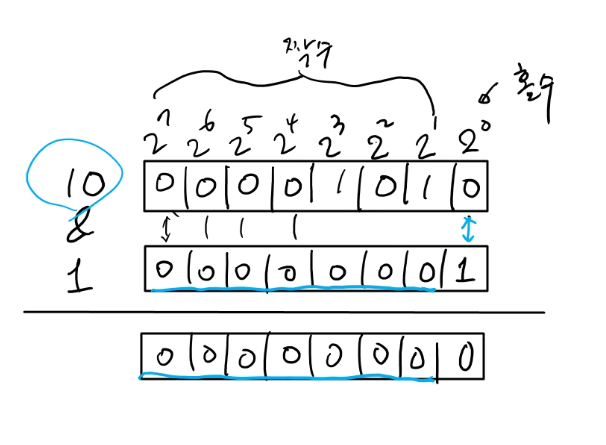 짝수
홀수
2⁷ 2⁶ 2⁵ 2⁴ 2³ 2² 2¹ 2⁰
10 0 0 0 0 1 0 1 0
&
1 0 0 0 0 0 0 0 1
0 0 0 0 0 0 0 0